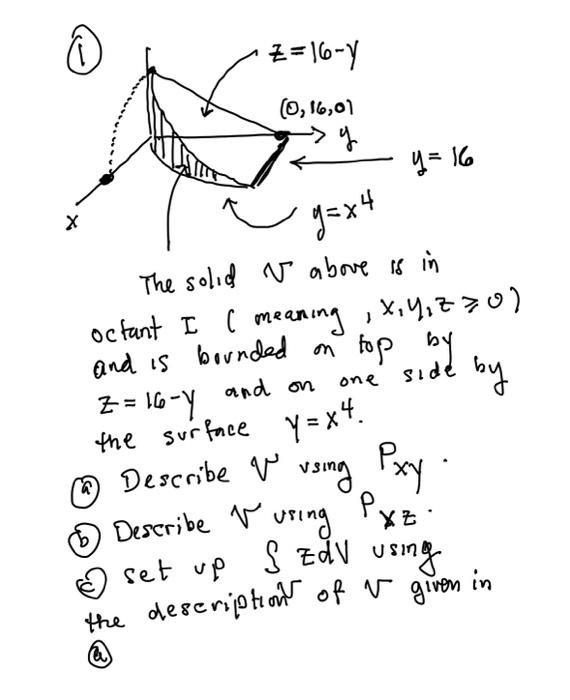 ①
z = 16-y
(0, 16, 0)
y
y = 16
x
y = x⁴
The solid V above is in
octant I ( meaning , x, y, z ⩾ 0 )
and is bounded on top by
z = 16-y and on one side by
the surface y = x⁴.
ⓐ Describe V using Pxy .
ⓑ Describe V using Pxz .
ⓒ set up ∫ z dV using
the description of V given in
ⓐ